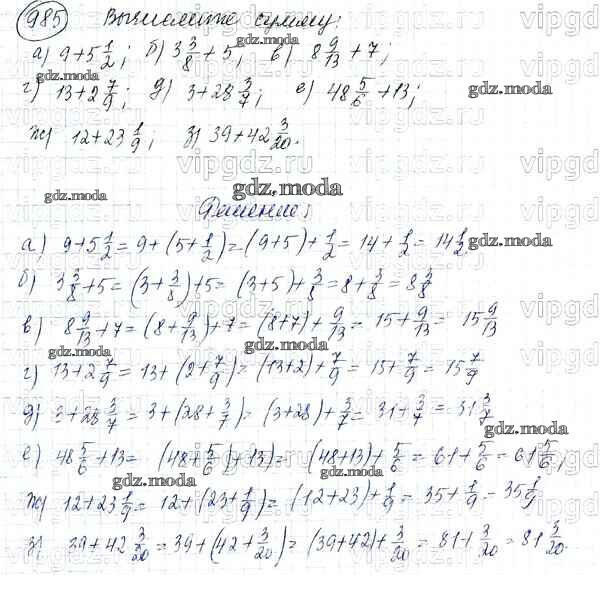 985 Вычислите сумму:
а) 9+5 1/2; б) 3 3/8+5, в) 8 9/13+7;
г) 13+2 7/9; д) 3+28 3/7; е) 48 5/6+13;
ж) 12+23 1/9; з) 39+42 3/20.
Решение:
а) 9+5 1/2=9+(5+1/2)=(9+5)+1/2=14+1/2=14 1/2
б) 3 3/8+5=(3+3/8)+5=(3+5)+3/8=8+3/8=8 3/8
в) 8 9/13+7=(8+9/13)+7=(8+7)+9/13=15+9/13=15 9/13
г) 13+2 7/9=13+(2+7/9)=(13+2)+7/9=15+7/9=15 7/9
д) 3+28 3/7=3+(28+3/7)=(3+28)+3/7=31+3/7=31 3/7
е) 48 5/6+13=(48+5/6)+13)=(48+13)+5/6=61+5/6=61 5/6
ж) 12+23 1/9=12+(23+1/9)=(12+23)+1/9=35+1/9=35 1/9
з) 39+42 3/20=39+(42+3/20)=(39+42)+3/20=81+3/20=81 3/20.
gdz.moda
vipgdz.ru